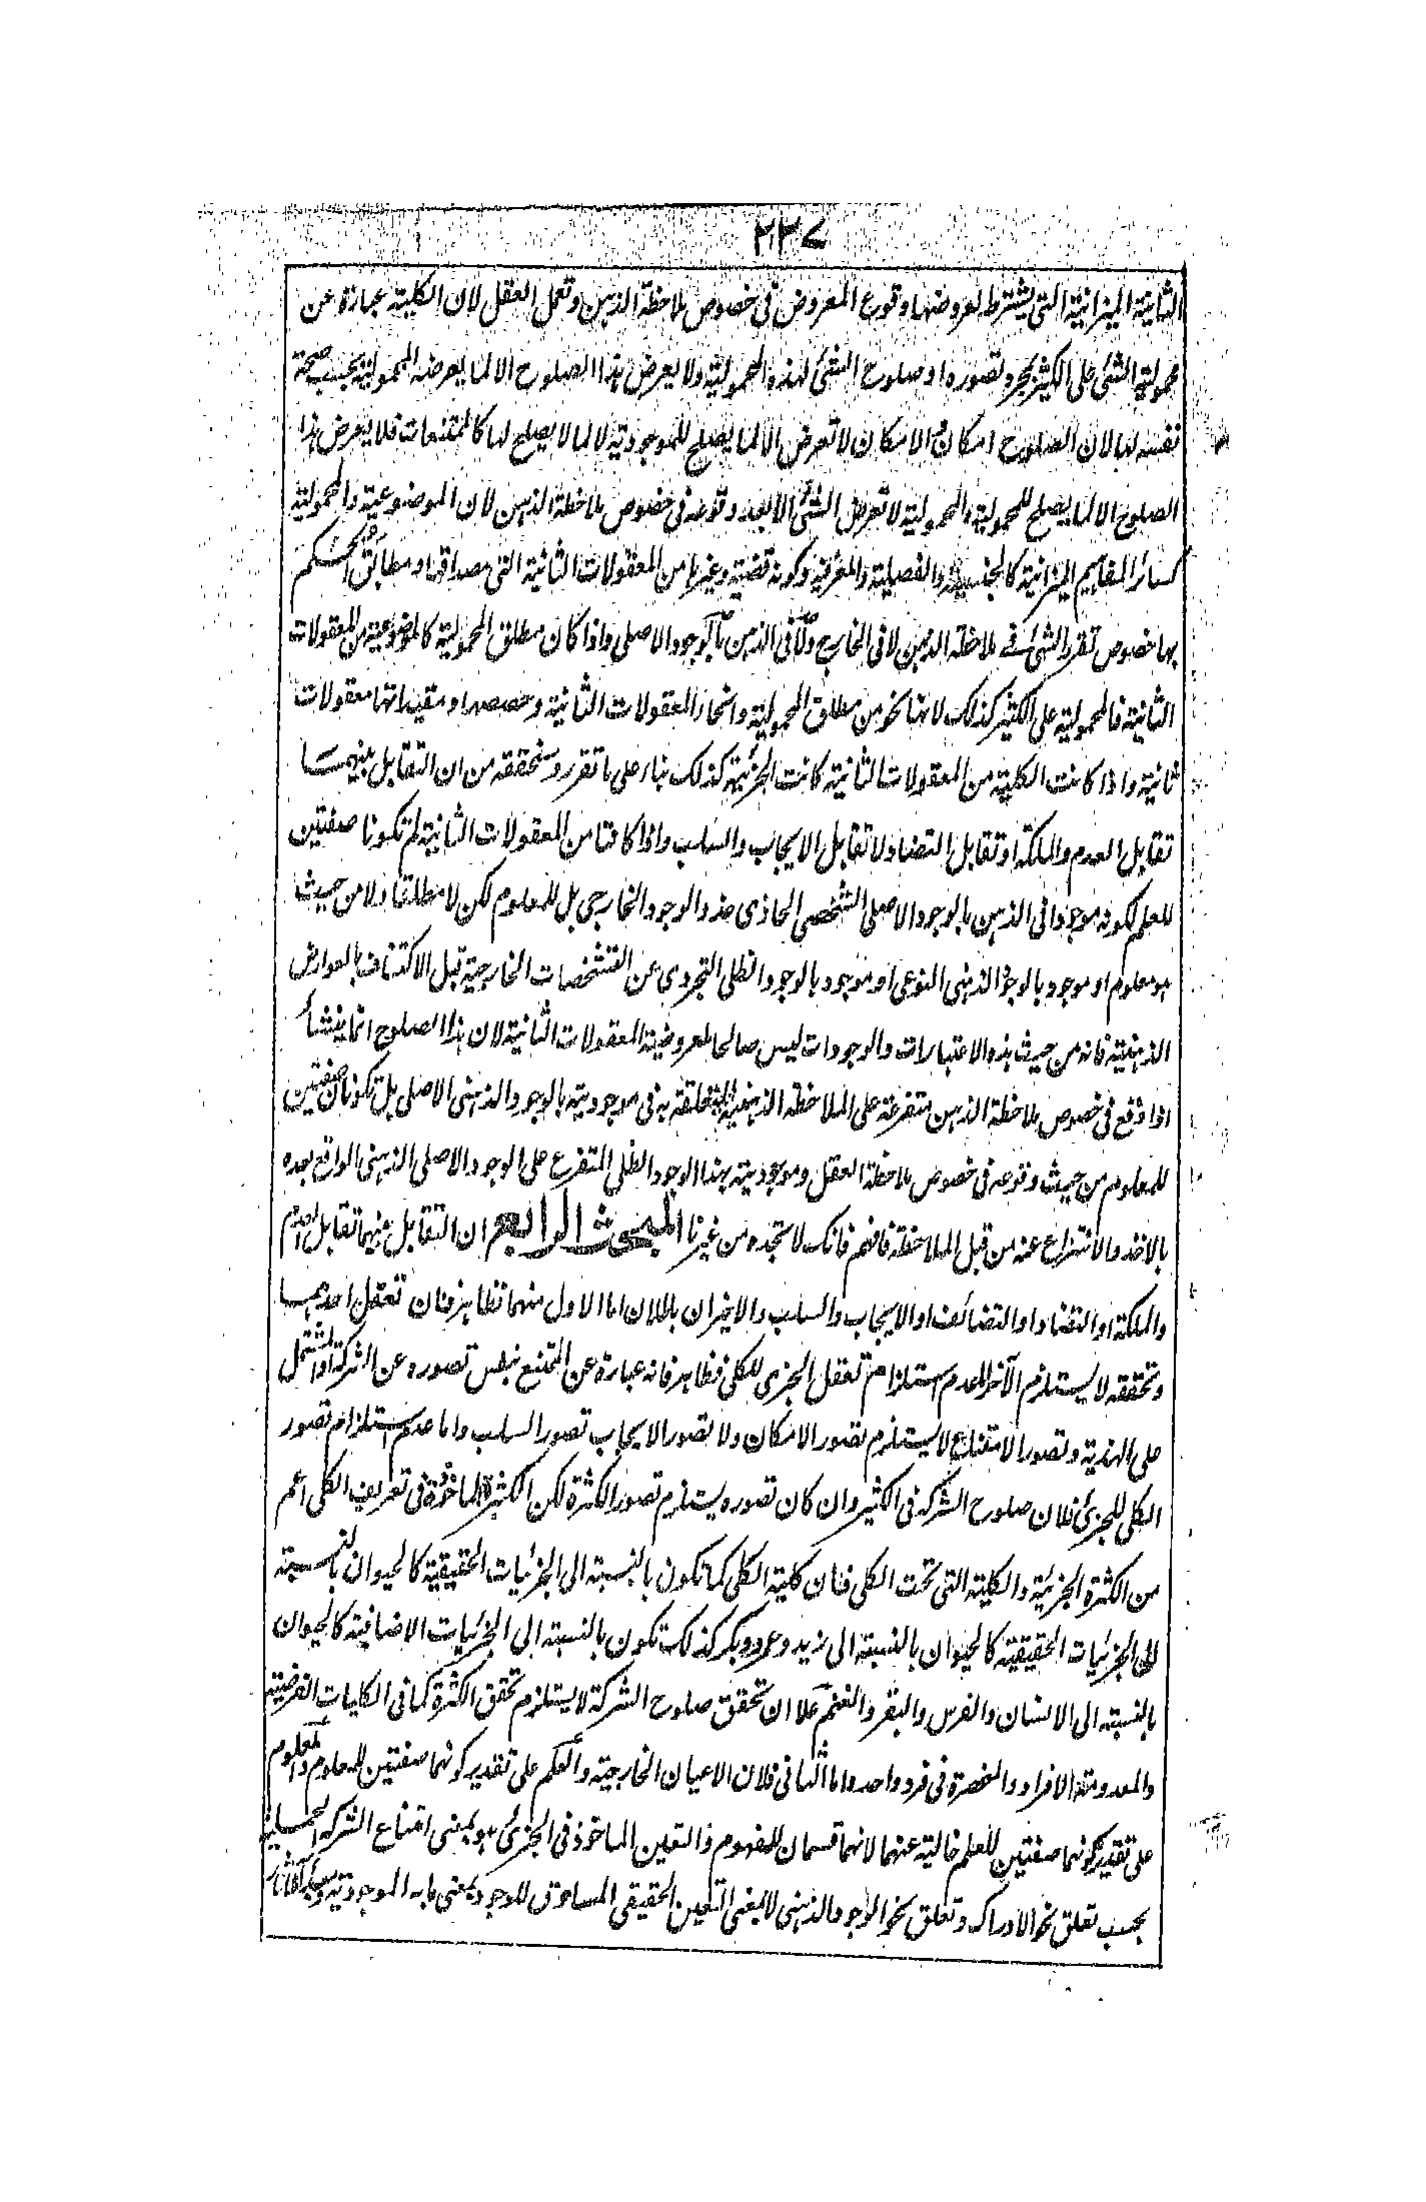 ٢٣٧
الثانية الميزانية التي يشترط لعروضها وقوع المعروض في خصوص ملاحظة الذهن وتعمل العقل لان الكلية عبارة عن
محمولية الشئ على الكثير بمجرد تصوره او صلوح الشئ لهذه المحمولية ولا يعرض هذا الصلوح الا لما يعرضه المحمولية بحسب صحة
نفسه لها لان الصلوح امكان والامكان لا تعرض الا لما يصلح للموجودية لا لما لا يصلح لها كالممتنعات فلا يعرض هذا
الصلوح الا لما يصلح للمحمولية والمحمولية لا تعرض الشئ الا بعد وقوعه في خصوص ملاحظة الذهن لان الموضوعية والمحمولية
كسائر المفاهيم الميزانية كالجنسية والفصلية والمعرفية وكونه قضية وغيرها من المعقولات الثانية التي مصداقها ومطابق الحكم
بها خصوص تقرر الشئ في ملاحظة الذهن لا في الخارج ولا في الذهن بالوجود الاصلي واذا كان مطلق المحمولية كالموضوعية من المعقولات
الثانية فالمحمولية على الكثير كذلك لانها نحو من مطلق المحمولية وانحاء المعقولات الثانية وحصصها ومقيداتها معقولات
ثانية واذا كانت الكلية من المعقولات الثانية كانت الجزئية كذلك بناء على ما تقرر وسنحققه من ان التقابل بينهما
تقابل العدم والملكة او تقابل التضاد لا تقابل الايجاب والسلب واذا كانتا من المعقولات الثانية لم تكونا صفتين
للعلم لكونه موجودا في الذهن بالوجود الاصلي الشخصي الحاذي حذو الوجود الخارجي بل للمعلوم لكن لا مطلقا ولا من حيث
هو معلوم او موجود بالوجود الذهني النوعي او موجود بالوجود الظلي التجردي عن التشخصات الخارجية قبل الاكتناف بالعوارض
الذهنية فانه من حيث هذه الاعتبارات والوجودات ليس صالحا لمعروضية المعقولات الثانية لان هذا الصلوح انما ينشأ
اذا وقع في خصوص ملاحظة الذهن متفرعة على الملاحظة الذهنية المتعلقة به في موجوديته بالوجود الذهني الاصلي بل تكونان صفتين
للمعلوم من حيث وقوعه في خصوص ملاحظة العقل وموجوديته بهذا الوجود الظلي المتفرع على الوجود الاصلي الذهني الواقع بعده
بالاخذ والانتزاع عنه من قبل الملاحظة فافهم فانك لا تجده من غيرنا المبحث الرابع ان التقابل بينهما تقابل العدم
والملكة او التضاد او التضائف او الايجاب والسلب والاخيران باطلان اما الاول منهما فظاهر فان تعقل احدهما
وتحققه لا يستلزم الآخر اما عدم استلزام تعقل الجزئي للكلي فظاهر فانه عبارة عن الممتنع نفس تصوره عن الشركة او المشتمل
على الهذية وتصور الامتناع لا يستلزم تصور الامكان ولا تصور الايجاب تصور السلب واما عدم استلزام تصور
الكلي للجزئي فلان صلوح الشركة في الكثير وان كان تصوره يستلزم تصور الكثرة لكن الكثرة الماخوذة في تعريف الكلي اعم
من الكثرة الجزئية والكلية التي تحت الكلي فان كلية الكلي كما تكون بالنسبة الى الجزئيات الحقيقية كالحيوان بالنسبة
الى الجزئيات الحقيقية كالحيوان بالنسبة الى زيد وعمرو وبكر كذلك تكون بالنسبة الى الجزئيات الاضافية كالحيوان
بالنسبة الى الانسان والفرس والبقر والغنم علا ان تحقق صلوح الشركة لا يستلزم تحقق الكثرة كما في الكليات الفرضية
والمعدومة الافراد والمنحصرة في فرد واحد واما الثاني فلان الاعيان الخارجية والعلم على تقدير كونهما صفتين للمعلوم والمعلوم
على تقدير كونهما صفتين للعلم خالية عنهما لانهما قسمان للمفهوم ذ التعين الماخوذ في الجزئي هو بمعنى امتناع الشركة
بحسب تعلق نحو الادراك وتعلق نحو الوجود الذهني لا بمعنى التعين الحقيقي المساوق للوجود بمعنى ما به الموجودية